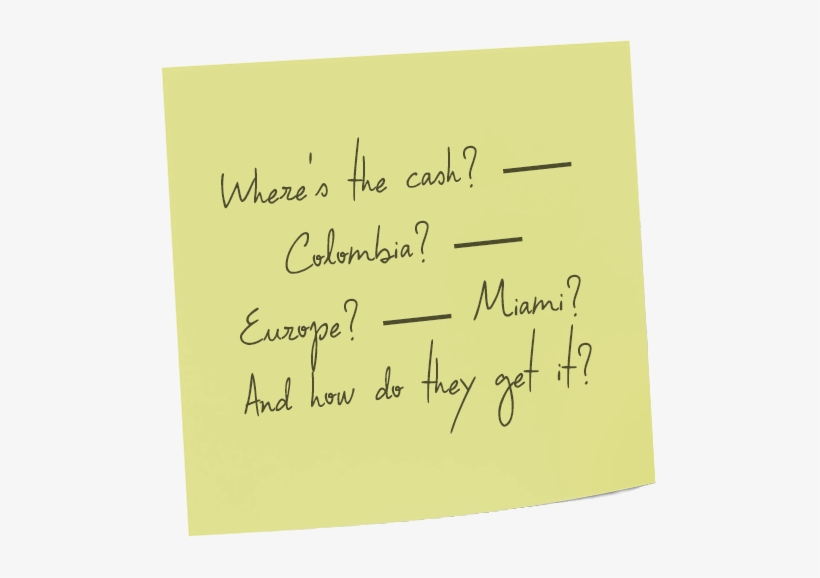 Where's the cash? —
Colombia? —
Europe? — Miami?
And how do they get it?